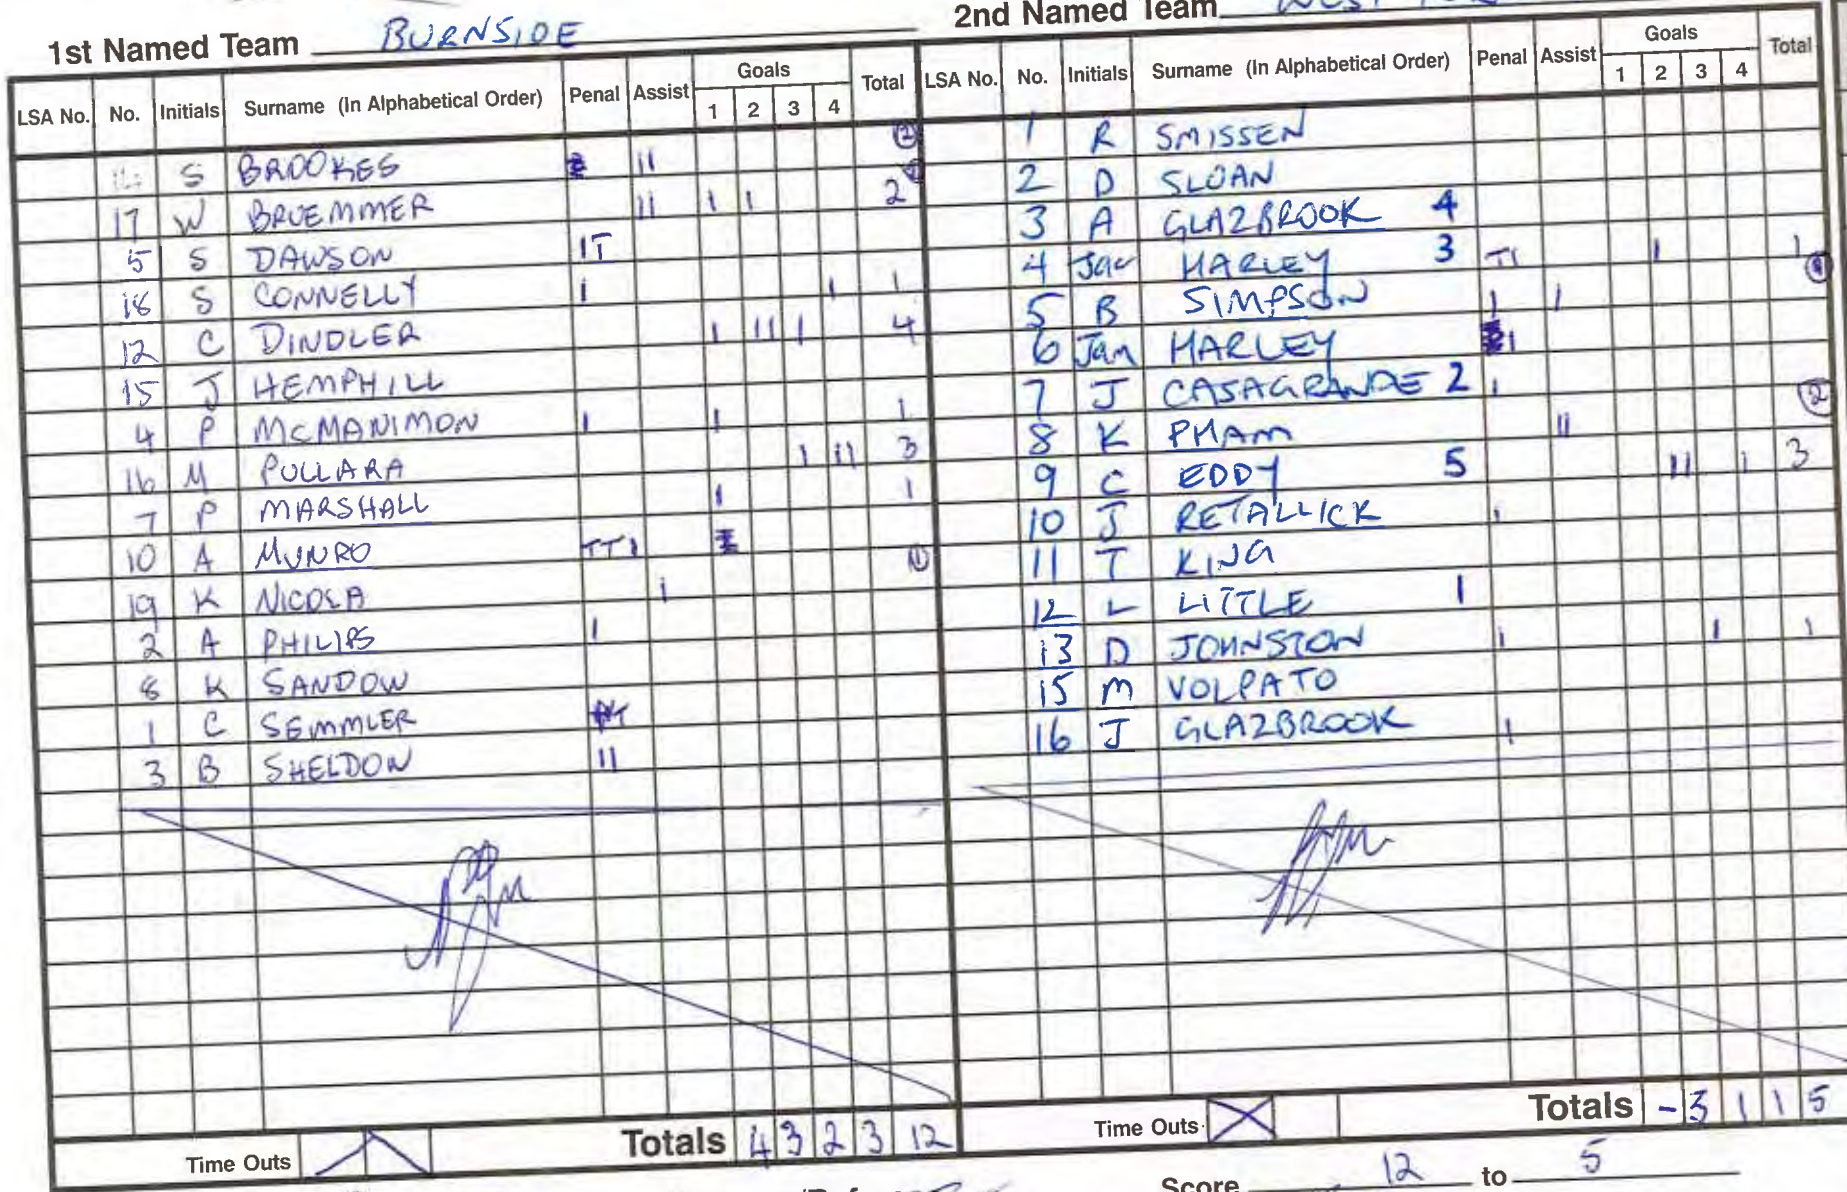 1st Named Team BURNSIDE
LSA No. No. Initials Surname (In Alphabetical Order) Penal Assist Goals 1 2 3 4 Total
S BROOKES II ②
17 W BRUEMMER II I I 2
5 S DAWSON IT
18 S CONNELLY I I 1
12 C DINDLER I II I 4
15 J HEMPHILL
4 P MCMANIMON I I 1
16 M PULLARA I II 3
7 P MARSHALL I 1
10 A MUNRO TTI
19 K NICOLA I ①
2 A PHILIPS I
8 K SANDOW
1 C SEMMLER
3 B SHELDON II
Time Outs Totals 4 3 2 3 12
2nd Named Team
LSA No. No. Initials Surname (In Alphabetical Order) Penal Assist Goals 1 2 3 4 Total
1 R SMISSEN
2 D SLOAN
3 A GLAZBROOK 4
4 Jac HARLEY 3 TI I 1
5 B SIMPSON I I ①
6 Jan HARLEY I
7 J CASAGRANDE 2 I
8 K PHAM II ②
9 C EDDY 5 II I 3
10 J RETALLICK I
11 T KING
12 L LITTLE 1
13 D JOHNSTON I I 1
15 M VOLPATO
16 J GLAZBROOK I
Time Outs Totals - 3 1 1 5
Score 12 to 5